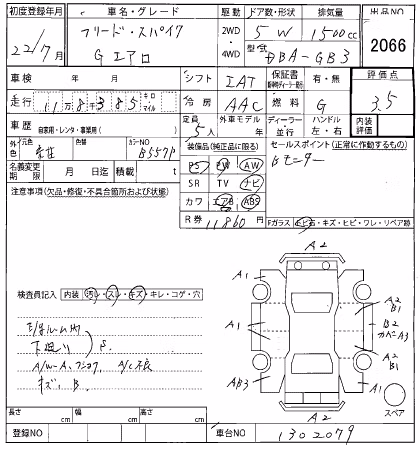 初度登録年月 車名・グレード 駆動 ドア数・形状 排気量 出品NO
22/7月 フリード・スパイク 2WD 5W 1500cc 2066
Gエアロ 4WD 型式 DBA-GB3
車検 年 月 シフト IAT 保証書 有・無 評価点
走行 11万8千385 キロ マイル 冷房 AAC 燃料 G 3.5
車歴 自家用・レンタ・事業用( ) 定員 5人 外車モデル 年 ディーラー 並行 ハンドル 左・右 内装評価
外色 元色 色替 カラーNO B557P 装備品(純正品に限る) セールスポイント(正常に作動するもの)
名義変更期限 月 日迄 積載 t PS PW AW Bモニター
注意事項(欠品・修復・不具合箇所および状態) SR TV ナビ
カワ エアB ABS
R券 11860円 Fガラス・トビ石・キズ・ヒビ・ワレ・リペア跡
A2
A1 A1
検査員記入 内装・汚レ・スレ・キズ・キレ・コゲ・穴 A2
B1
A1 B2
A3
下廻り S
A/C不良 A2
B1
キズ、B AB3 A1
A2 スペア
長さ cm 幅 cm 高さ cm
登録NO 車台NO 1302079